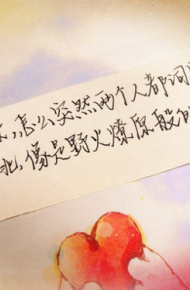 怎么突然两个人都词
像是野火燎原般的